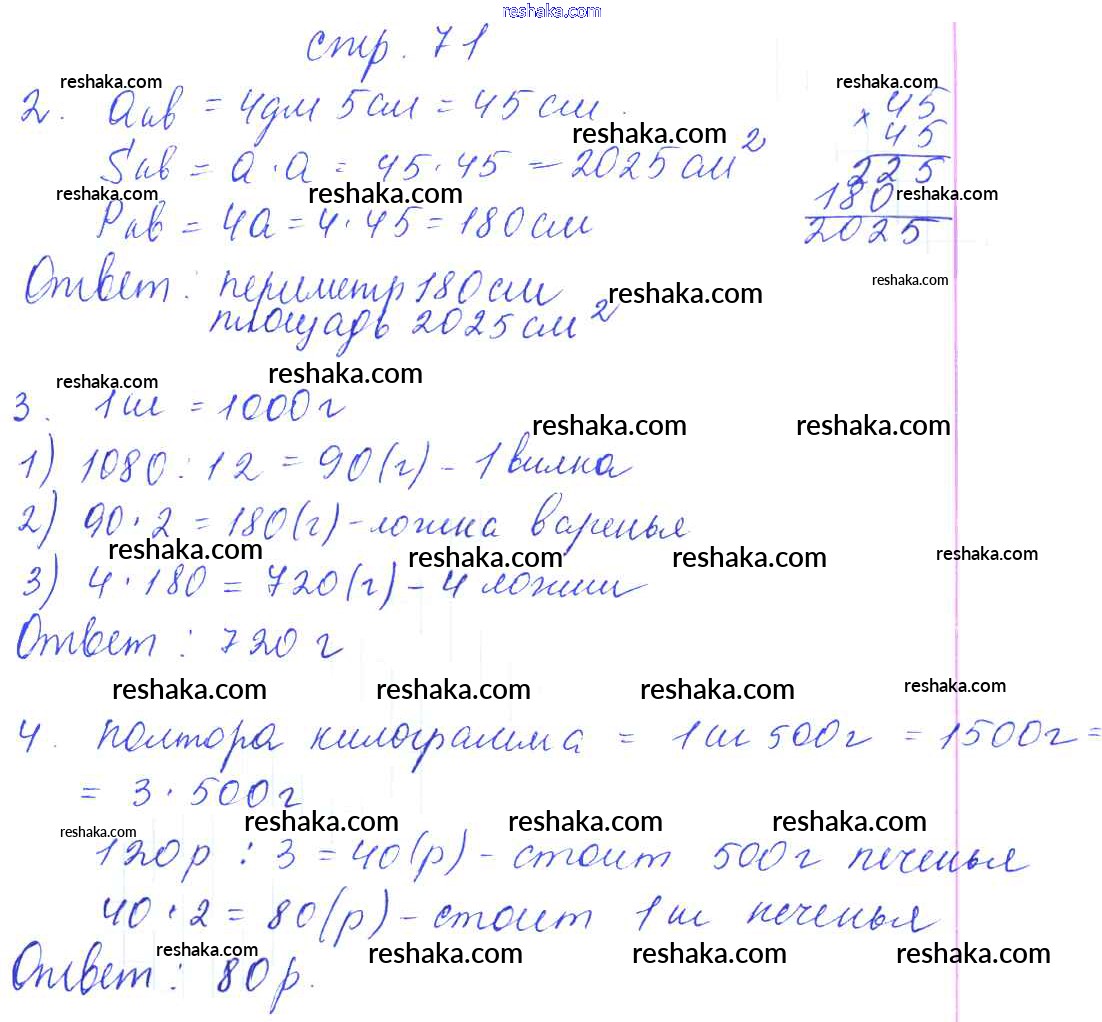 reshaka.com
стр. 71
reshaka.com reshaka.com
2. aкв = 4дм 5см = 45см.
reshaka.com
Sкв = a · a = 45 · 45 = 2025 см²
reshaka.com reshaka.com
Pкв = 4a = 4 · 45 = 180 см
× 45
45
225
reshaka.com
180
2025
Ответ: периметр 180 см
reshaka.com reshaka.com
площадь 2025 см²
reshaka.com reshaka.com
3. 1кг = 1000г
reshaka.com reshaka.com
1) 1080 : 12 = 90(г) - 1 вилка
2) 90 · 2 = 180(г) - ложка варенья
reshaka.com reshaka.com reshaka.com reshaka.com
3) 4 · 180 = 720(г) - 4 ложки
Ответ : 720 г
reshaka.com reshaka.com reshaka.com reshaka.com
4. Полтора килограмма = 1кг 500г = 1500г =
= 3 · 500г
reshaka.com reshaka.com reshaka.com reshaka.com
120р : 3 = 40(р) - стоит 500г печенья
40 · 2 = 80(р) - стоит 1кг печенья
reshaka.com reshaka.com reshaka.com reshaka.com
Ответ : 80р.